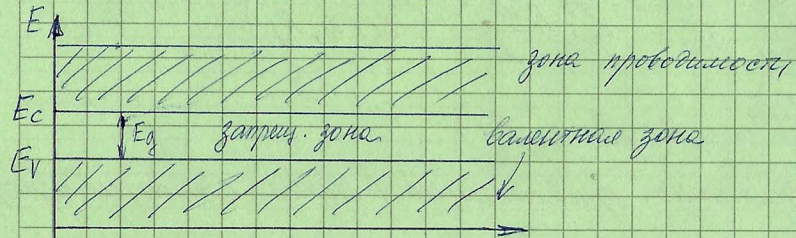 E
зона проводимости
Ec
Eg запрещ. зона
валентная зона
Ev